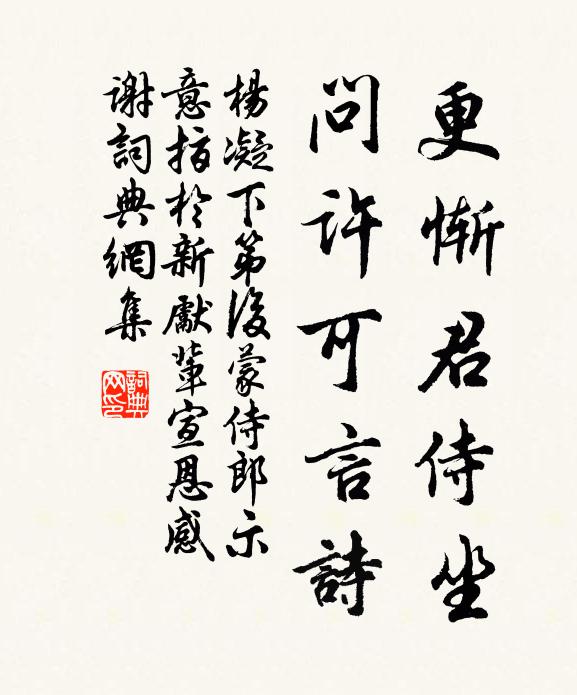 更惭君侍坐
問許可言詩
楊凝下第後蒙侍郎示
意指於新獻輩宣恩感
謝詞典網集
詞典网印